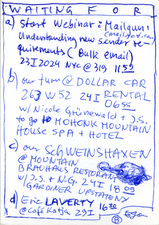 WAITING FOR
a) Start Webinar: Mailgun:
Understanding new sender re
quirements (Bulk email)
23I2024 NYC @ 319 11 55
b) our turn @ DOLLAR CAR
263 W 52 24I RENTAL
06 55
w/ Nicole Grünewald + J.S.
to go to MOHONK MOUNTAIN
HOUSE SPA + HOTEL
c) our SCHWEINSHAXEN
@ MOUNTAIN
BRAUHAUS RESTORANT
w/ J.S. + N.G. 24I 18 09
GARDINER UPSTATE NY
d) Eric LAVERTY 16 38
@ Café Katja 29I